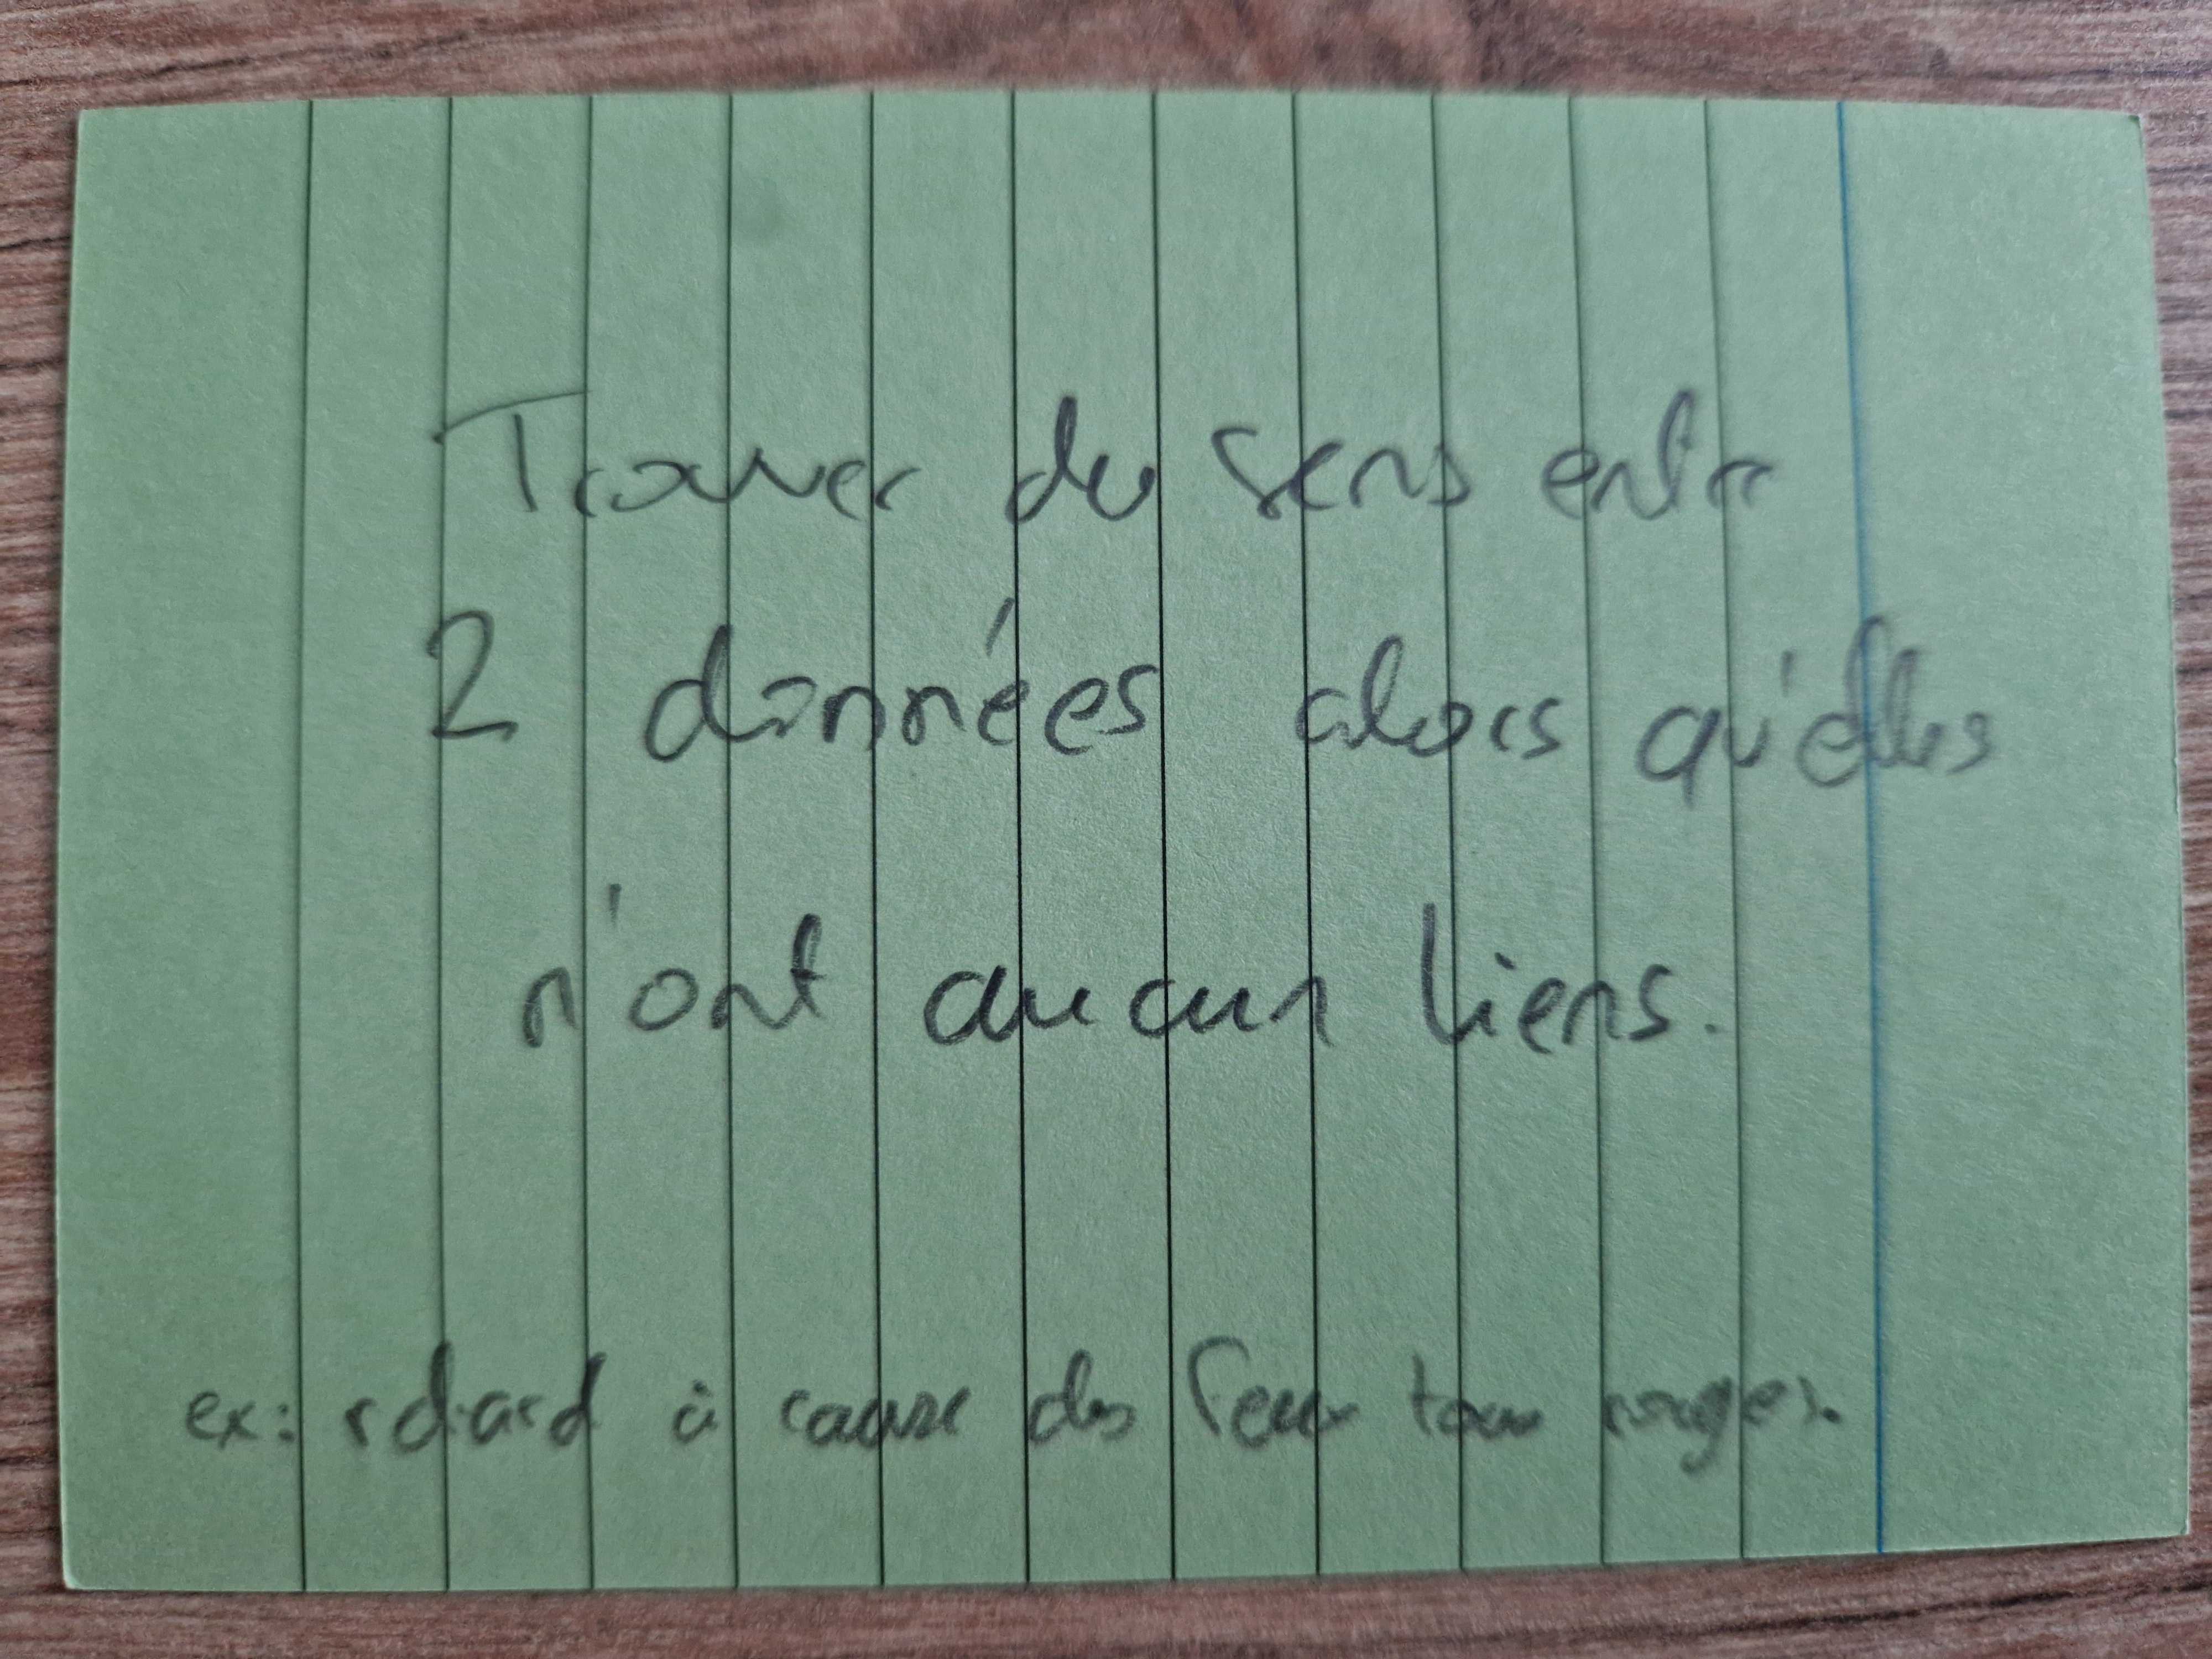 Trouver du sens entre
2 données alors qu'elles
n'ont aucun liens.
ex: retard à cause des feux tous rouges.